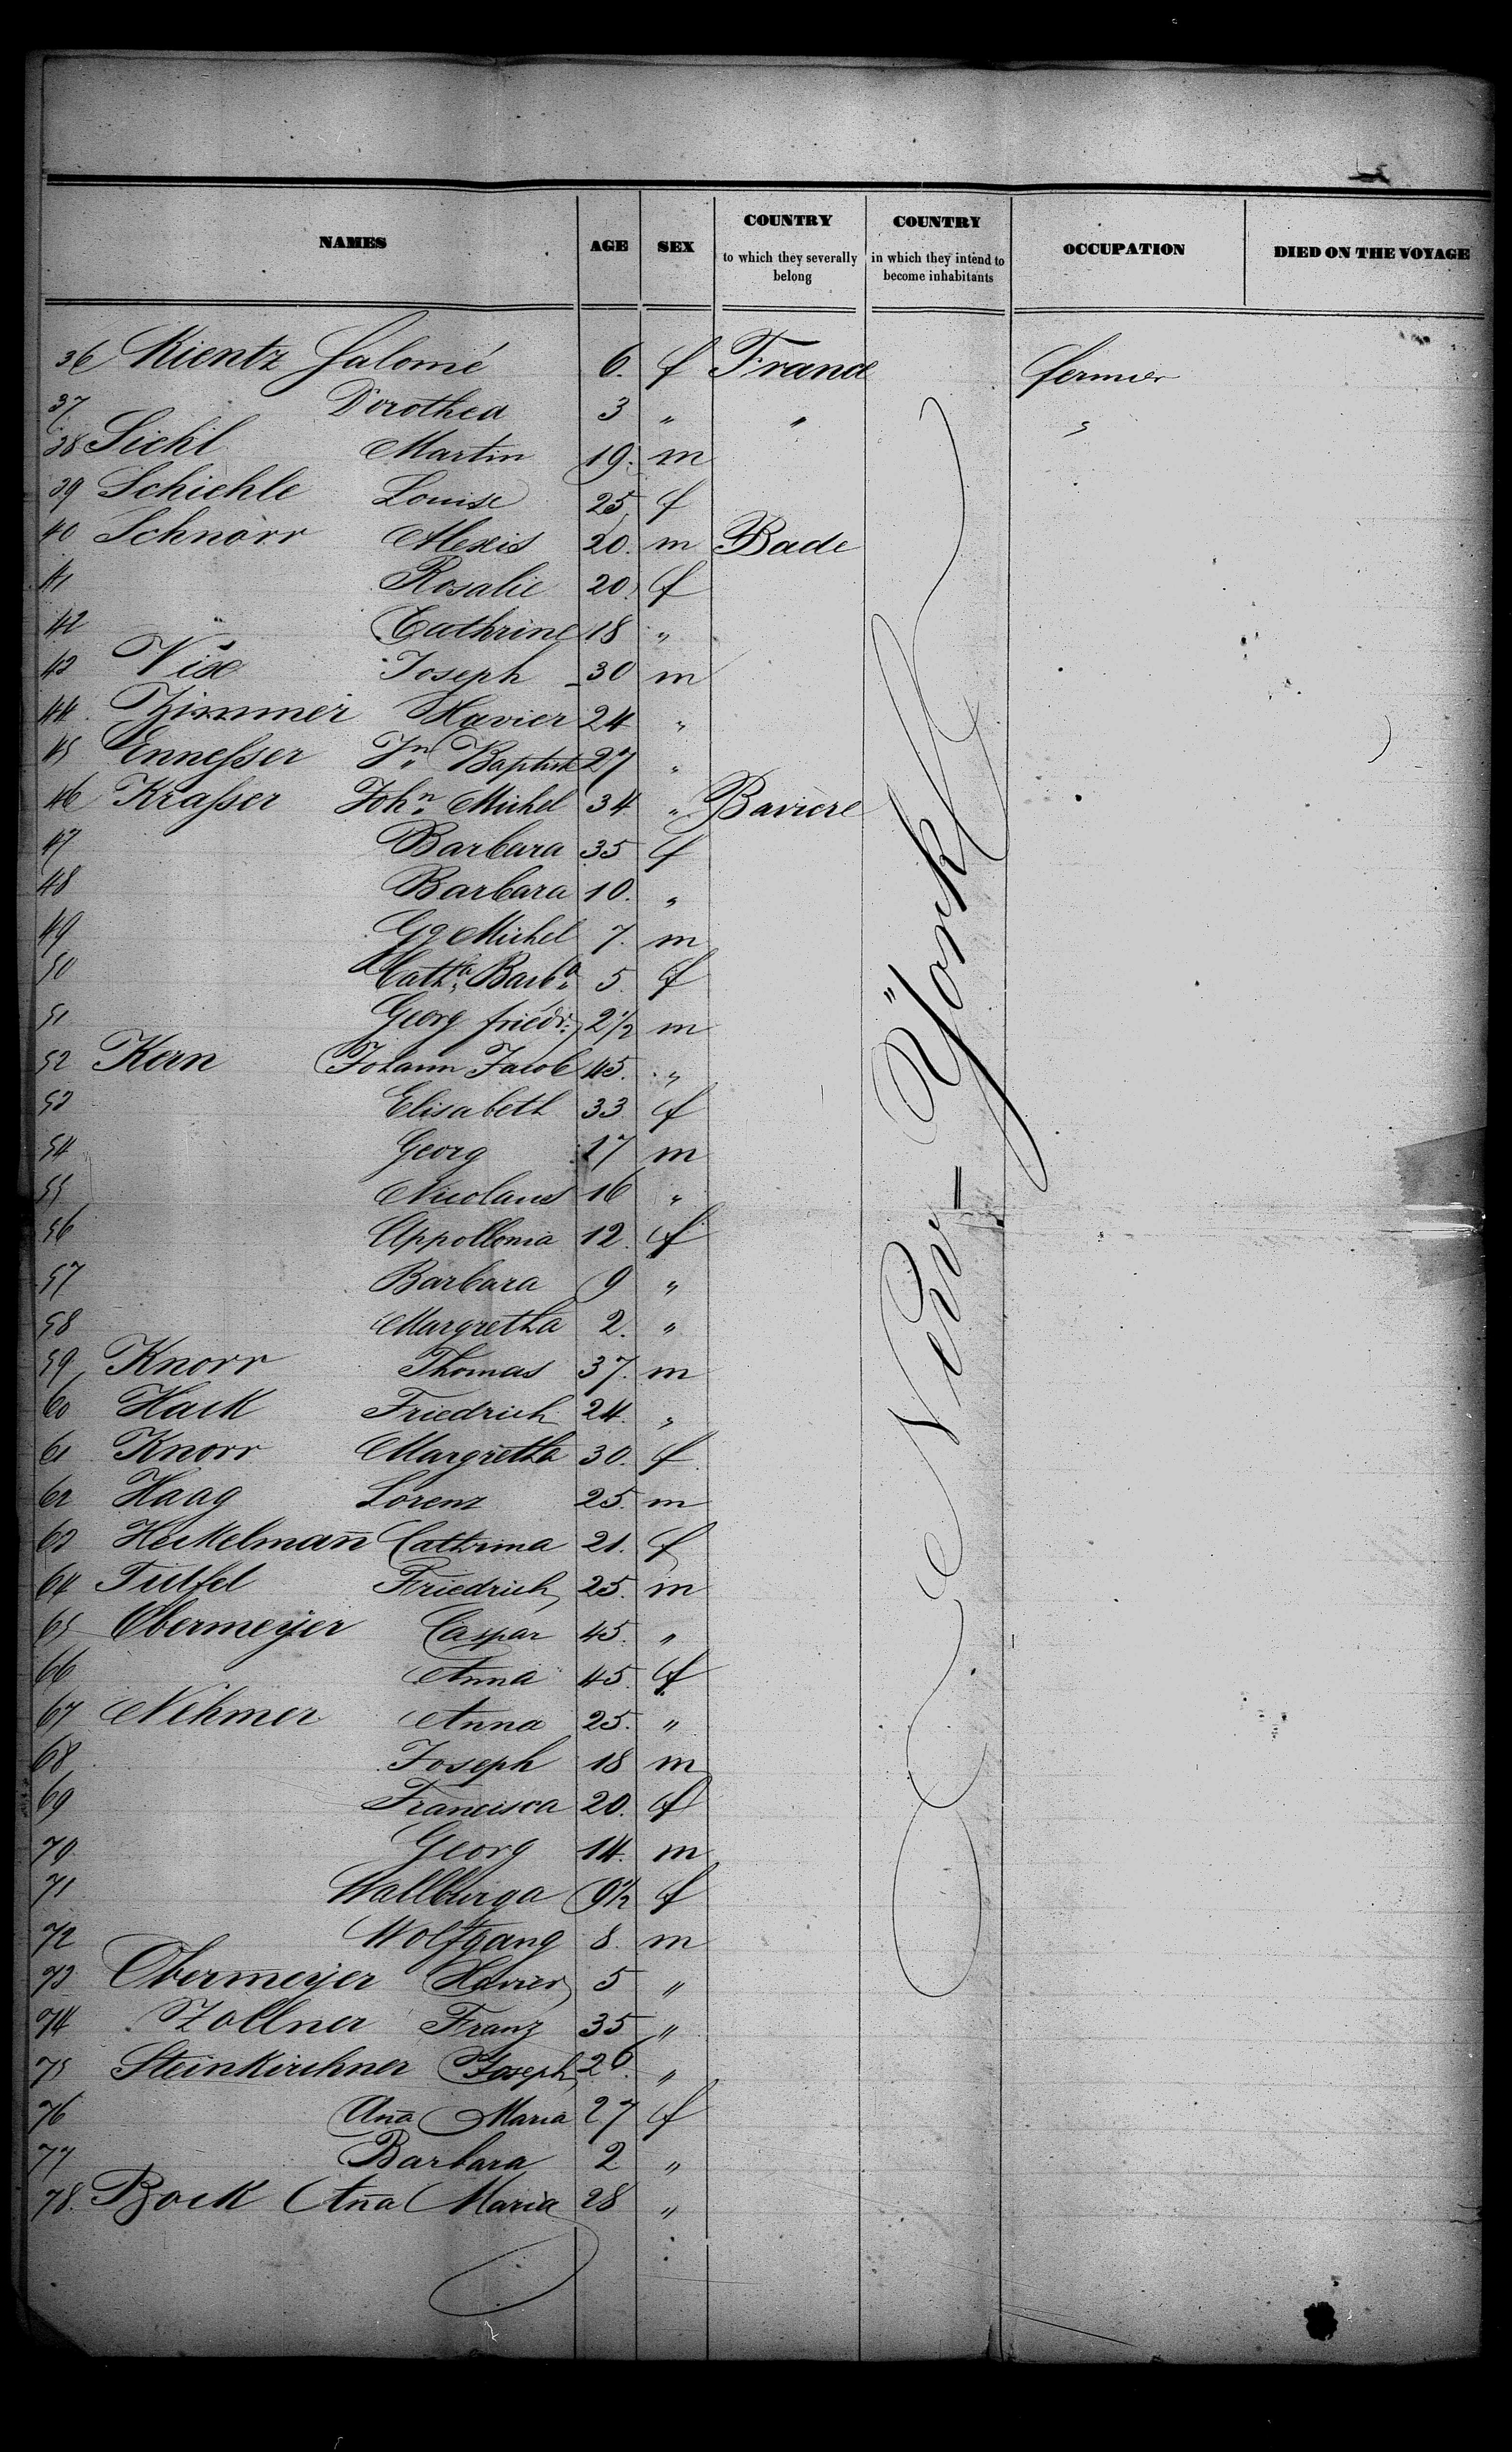 NAMES AGE SEX COUNTRY to which they severally belong COUNTRY in which they intend to become inhabitants OCCUPATION DIED ON THE VOYAGE
36 Kientz Salomé 6. f France fermier
37 Dorothea 3 " " "
38 Sichl Martin 19. m
39 Schiehle Louise 25 f
40 Schnorr Alexis 20. m Bade
41 Rosalie 20 f
42 Cathrine 18 "
43 Joseph 30 m
44 Zimmer Xavier 24 "
45 Ennesser Jn. Baptist 27 "
46 Krasser John. Michel 34 " Baviere
47 Barbara 35 f
48 Barbara 10. "
49 Gg Michel 7. m
50 Catha. Barba. 5 f
51 Georg friedr. 2 1/2 m
52 Kern Johann Jacob 45. "
53 Elisabeth 33 f
54 Georg 17 m
55 Nicolaus 16 "
56 Appollonia 12 f
57 Barbara 9 "
58 Margretha 2. "
59 Knorr Thomas 37. m
60 Hack Friedrich 24. "
61 Knorr Margretha 30. f
62 Haag Lorenz 25. m
63 Heckelmañ Cathrina 21. f
64 Friedrich 25. m
65 Obermeÿer Caspar 45. "
66 Anna 45 f
67 Nehmer Anna 25. "
68 Joseph 18 m
69 Francisca 20. f
70 Georg 14. m
71 Wallburga 9 1/2 f
72 Wolfgang 8. m
73 Obermeÿer Xavier 5 "
74 Zollner Franz 35 "
75 Steinkirchner Joseph 26. "
76 Aña Maria 27 f
77 Barbara 2 "
78. Bock Aña Maria 28 "
New-Ÿork